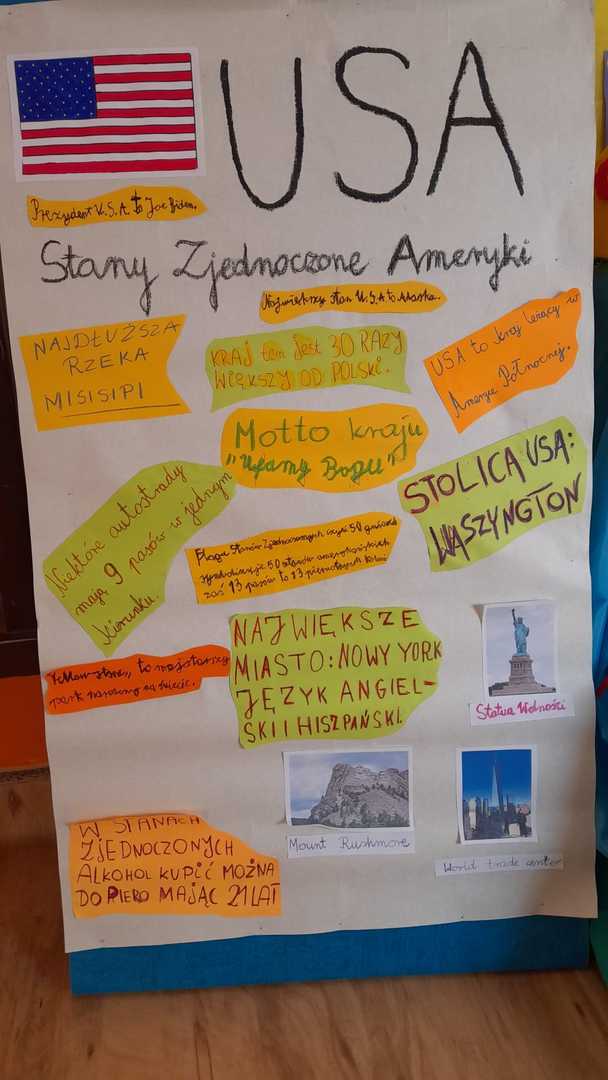 USA
Prezydent U.S.A. to Joe Biden.
Stany Zjednoczone Ameryki
Największy stan U.S.A to Alaska.
NAJDŁUŻSZA
RZEKA
MISISIPI
KRAJ ten jest 30 RAZY
WIĘKSZY OD POLSKI.
USA to kraj leżący w
Ameryce Północnej.
Motto kraju
"Ufamy Bogu"
STOLICA USA:
WASZYNGTON
Niektóre autostrady
mają 9 pasów w jednym
kierunku.
Flaga Stanów Zjednoczonych liczy 50 gwiazd
symbolizuje 50 stanów amerykańskich
zaś 13 pasów to 13 pierwotnych kolonii
NAJWIĘKSZE
MIASTO: NOWY YORK
JĘZYK ANGIEL-
SKI I HISZPAŃSKI.
"Yellowstone" to najstarszy
park narodowy na świecie.
Statua Wolności
Mount Rushmore
World trade center
W STANACH
ZJEDNOCZONYCH
ALKOHOL KUPIĆ MOŻNA
DOPIERO MAJĄC 21 LAT